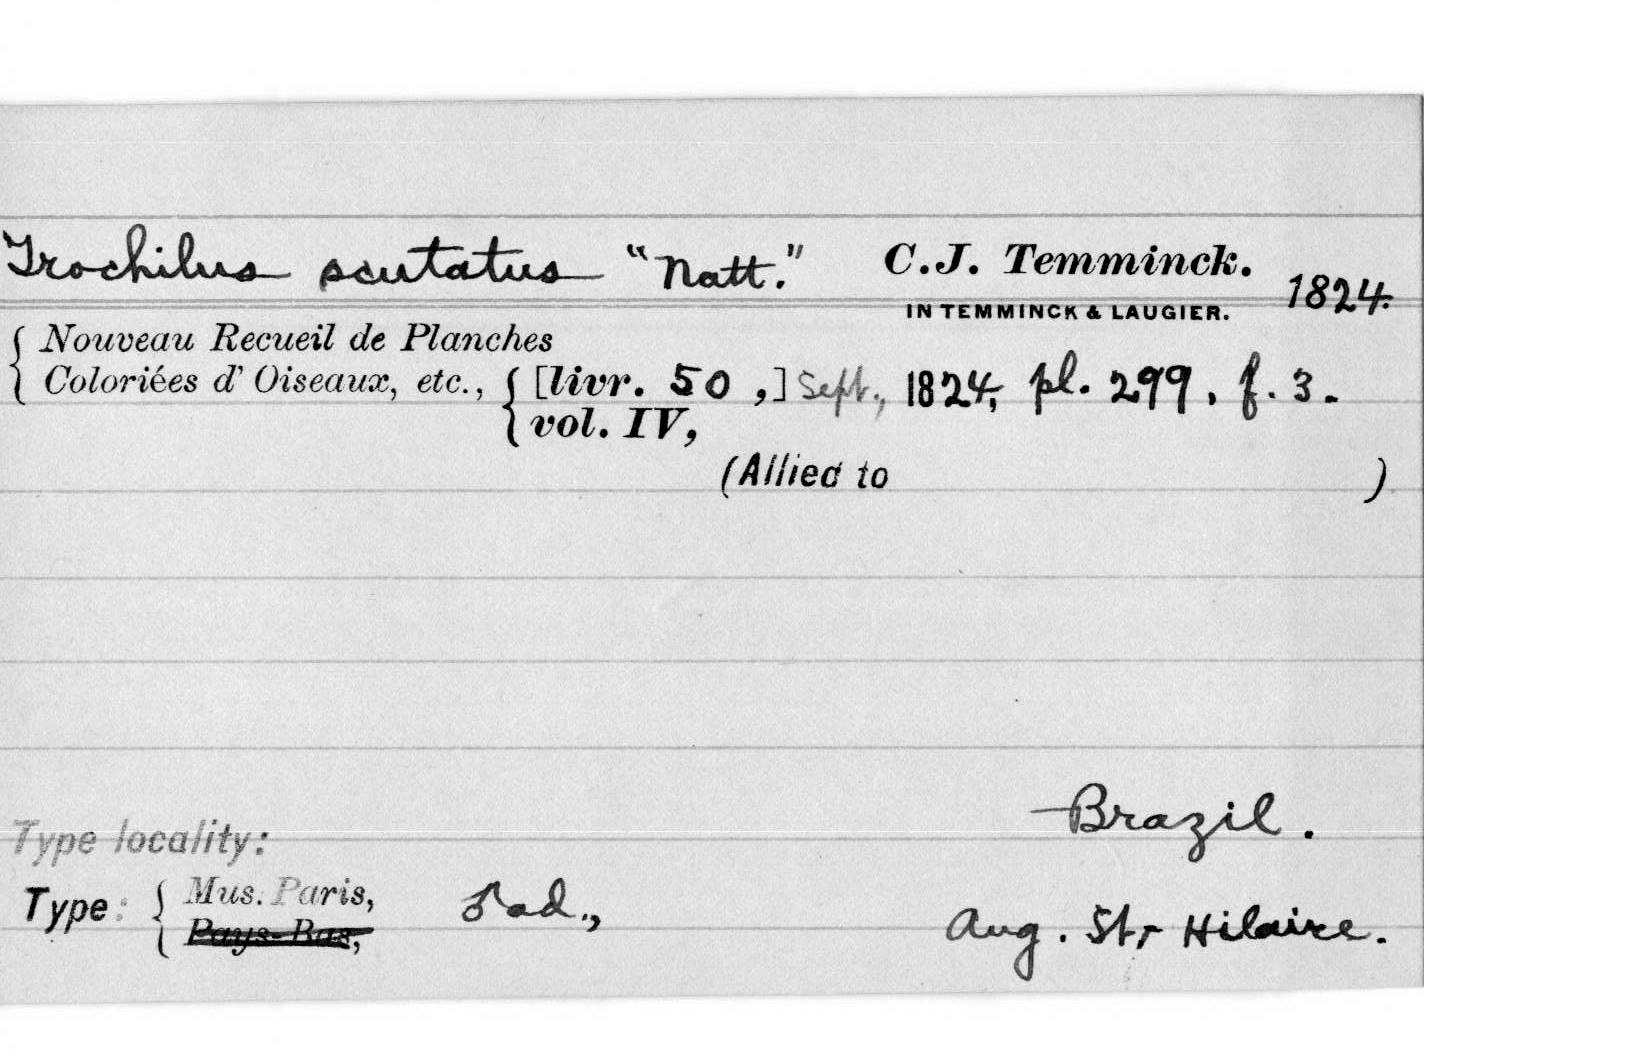 Trochilus scutatus "Natt." C.J. Temminck.
IN TEMMINCK & LAUGIER. 1824.
Nouveau Recueil de Planches
Coloriées d' Oiseaux, etc., [livr. 50,] Sept., 1824, pl. 299, f. 3.
vol. IV,
(Allied to )
Brazil.
Type locality:
Type: Mus. Paris, ad., Aug. St. Hilaire.
Pays-Bas,